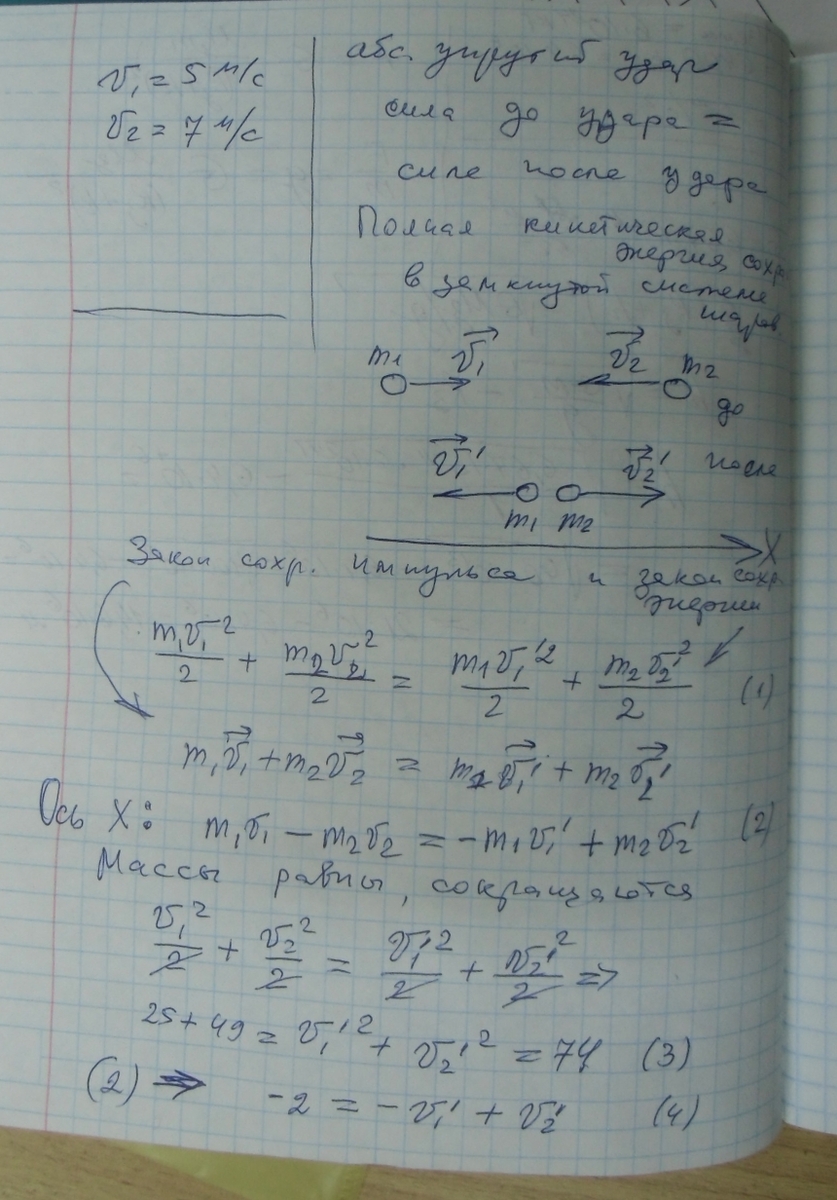 υ₁ = 5 м/с
υ₂ = 7 м/с
абс. упругий удар
сила до удара =
силе после удара
Полная кинетическая
энергия сохр.
в замкнутой системе
шаров.
m₁ υ₁ υ₂ m₂
до
υ₁' υ₂' после
m₁ m₂
X
Закон сохр. импульса и закон сохр.
энергии
m₁υ₁²/2 + m₂υ₂²/2 = m₁υ₁'²/2 + m₂υ₂'²/2 (1)
m₁υ₁ + m₂υ₂ = m₁υ₁' + m₂υ₂'
Ось X: m₁υ₁ - m₂υ₂ = -m₁υ₁' + m₂υ₂' (2)
Массы равны, сокращаются
υ₁²/2 + υ₂²/2 = υ₁'²/2 + υ₂'²/2 =>
25 + 49 = υ₁'² + υ₂'² = 74 (3)
(2) → -2 = -υ₁' + υ₂' (4)